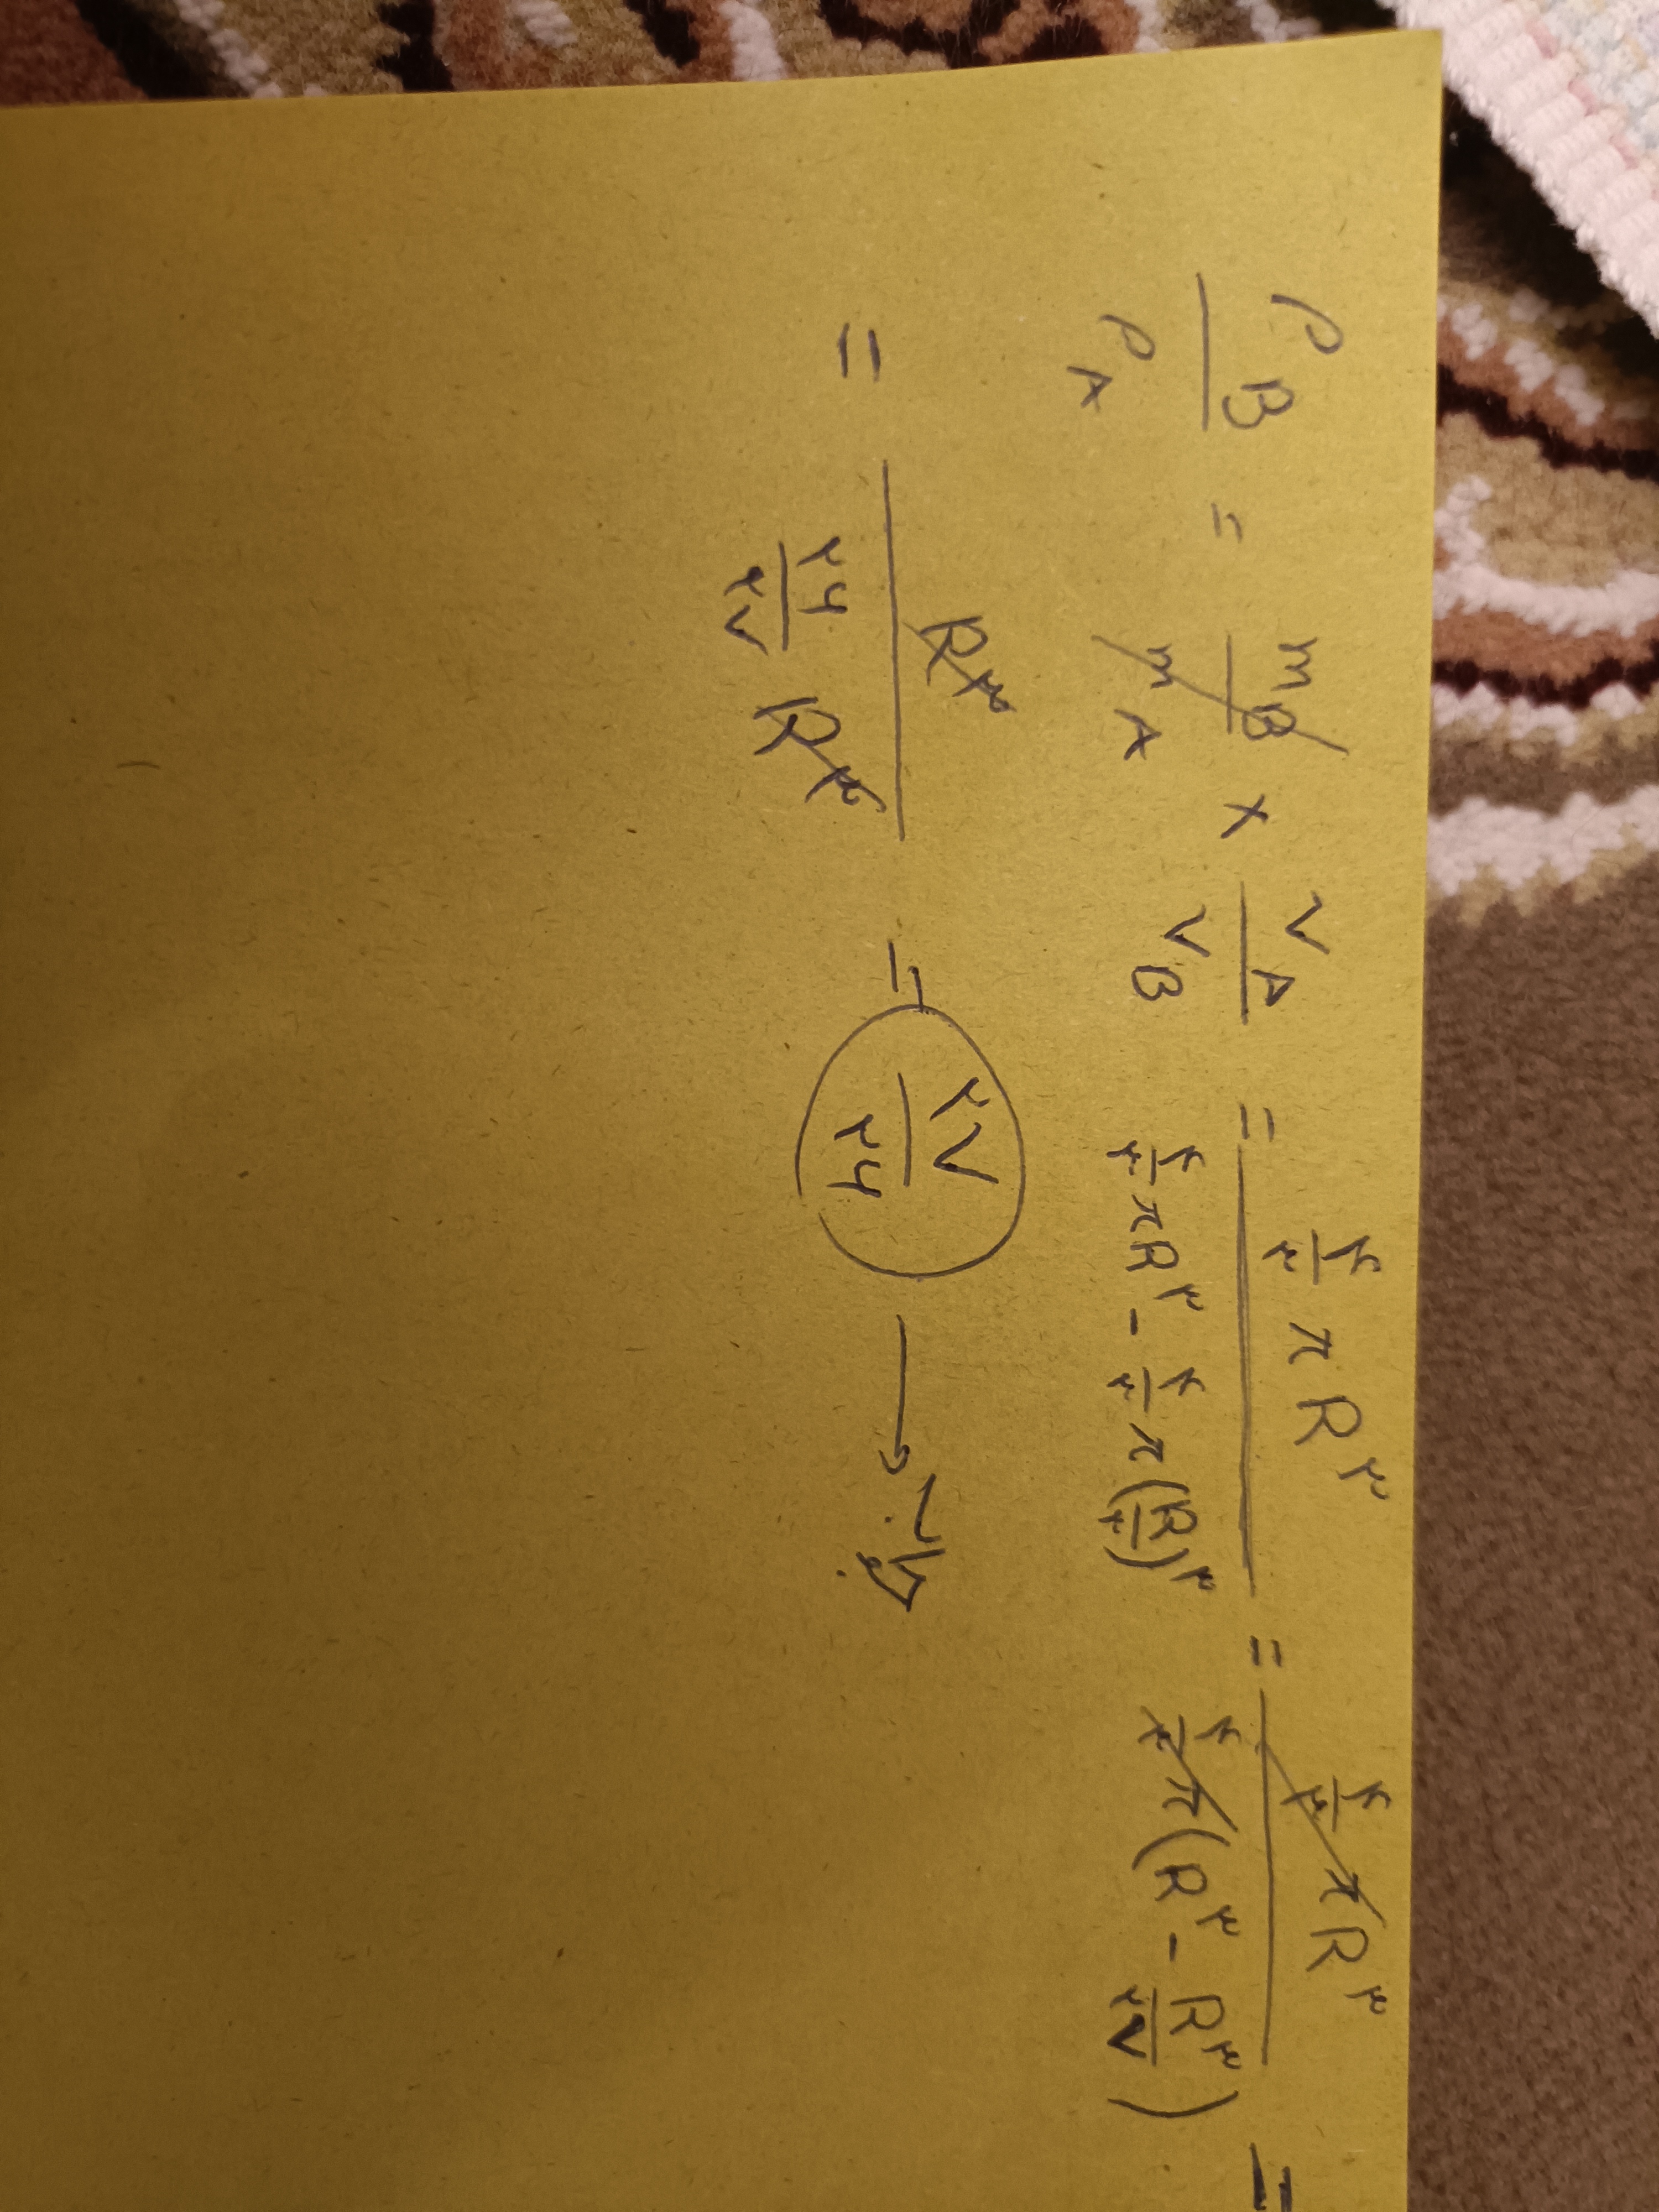 ρB/ρA = mB/mA × VA/VB = (۴/۳ π R^۳)/(۴/۳ π R^۳ - ۴/۳ π (R/۳)^۳) = (۴/۳ π R^۳)/(۴/۳ π (R^۳ - R^۳/۲۷)) =
= R^۳/(۲۶/۲۷ R^۳) = ۲۷/۲۶ →